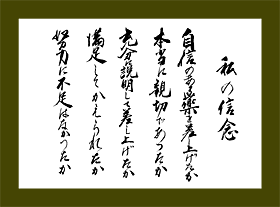 私の信念
自信のある薬を差し上げたか
本当に親切であつたか
充分説明して差し上げたか
満足してかえられたか
努力に不足はなかつたか